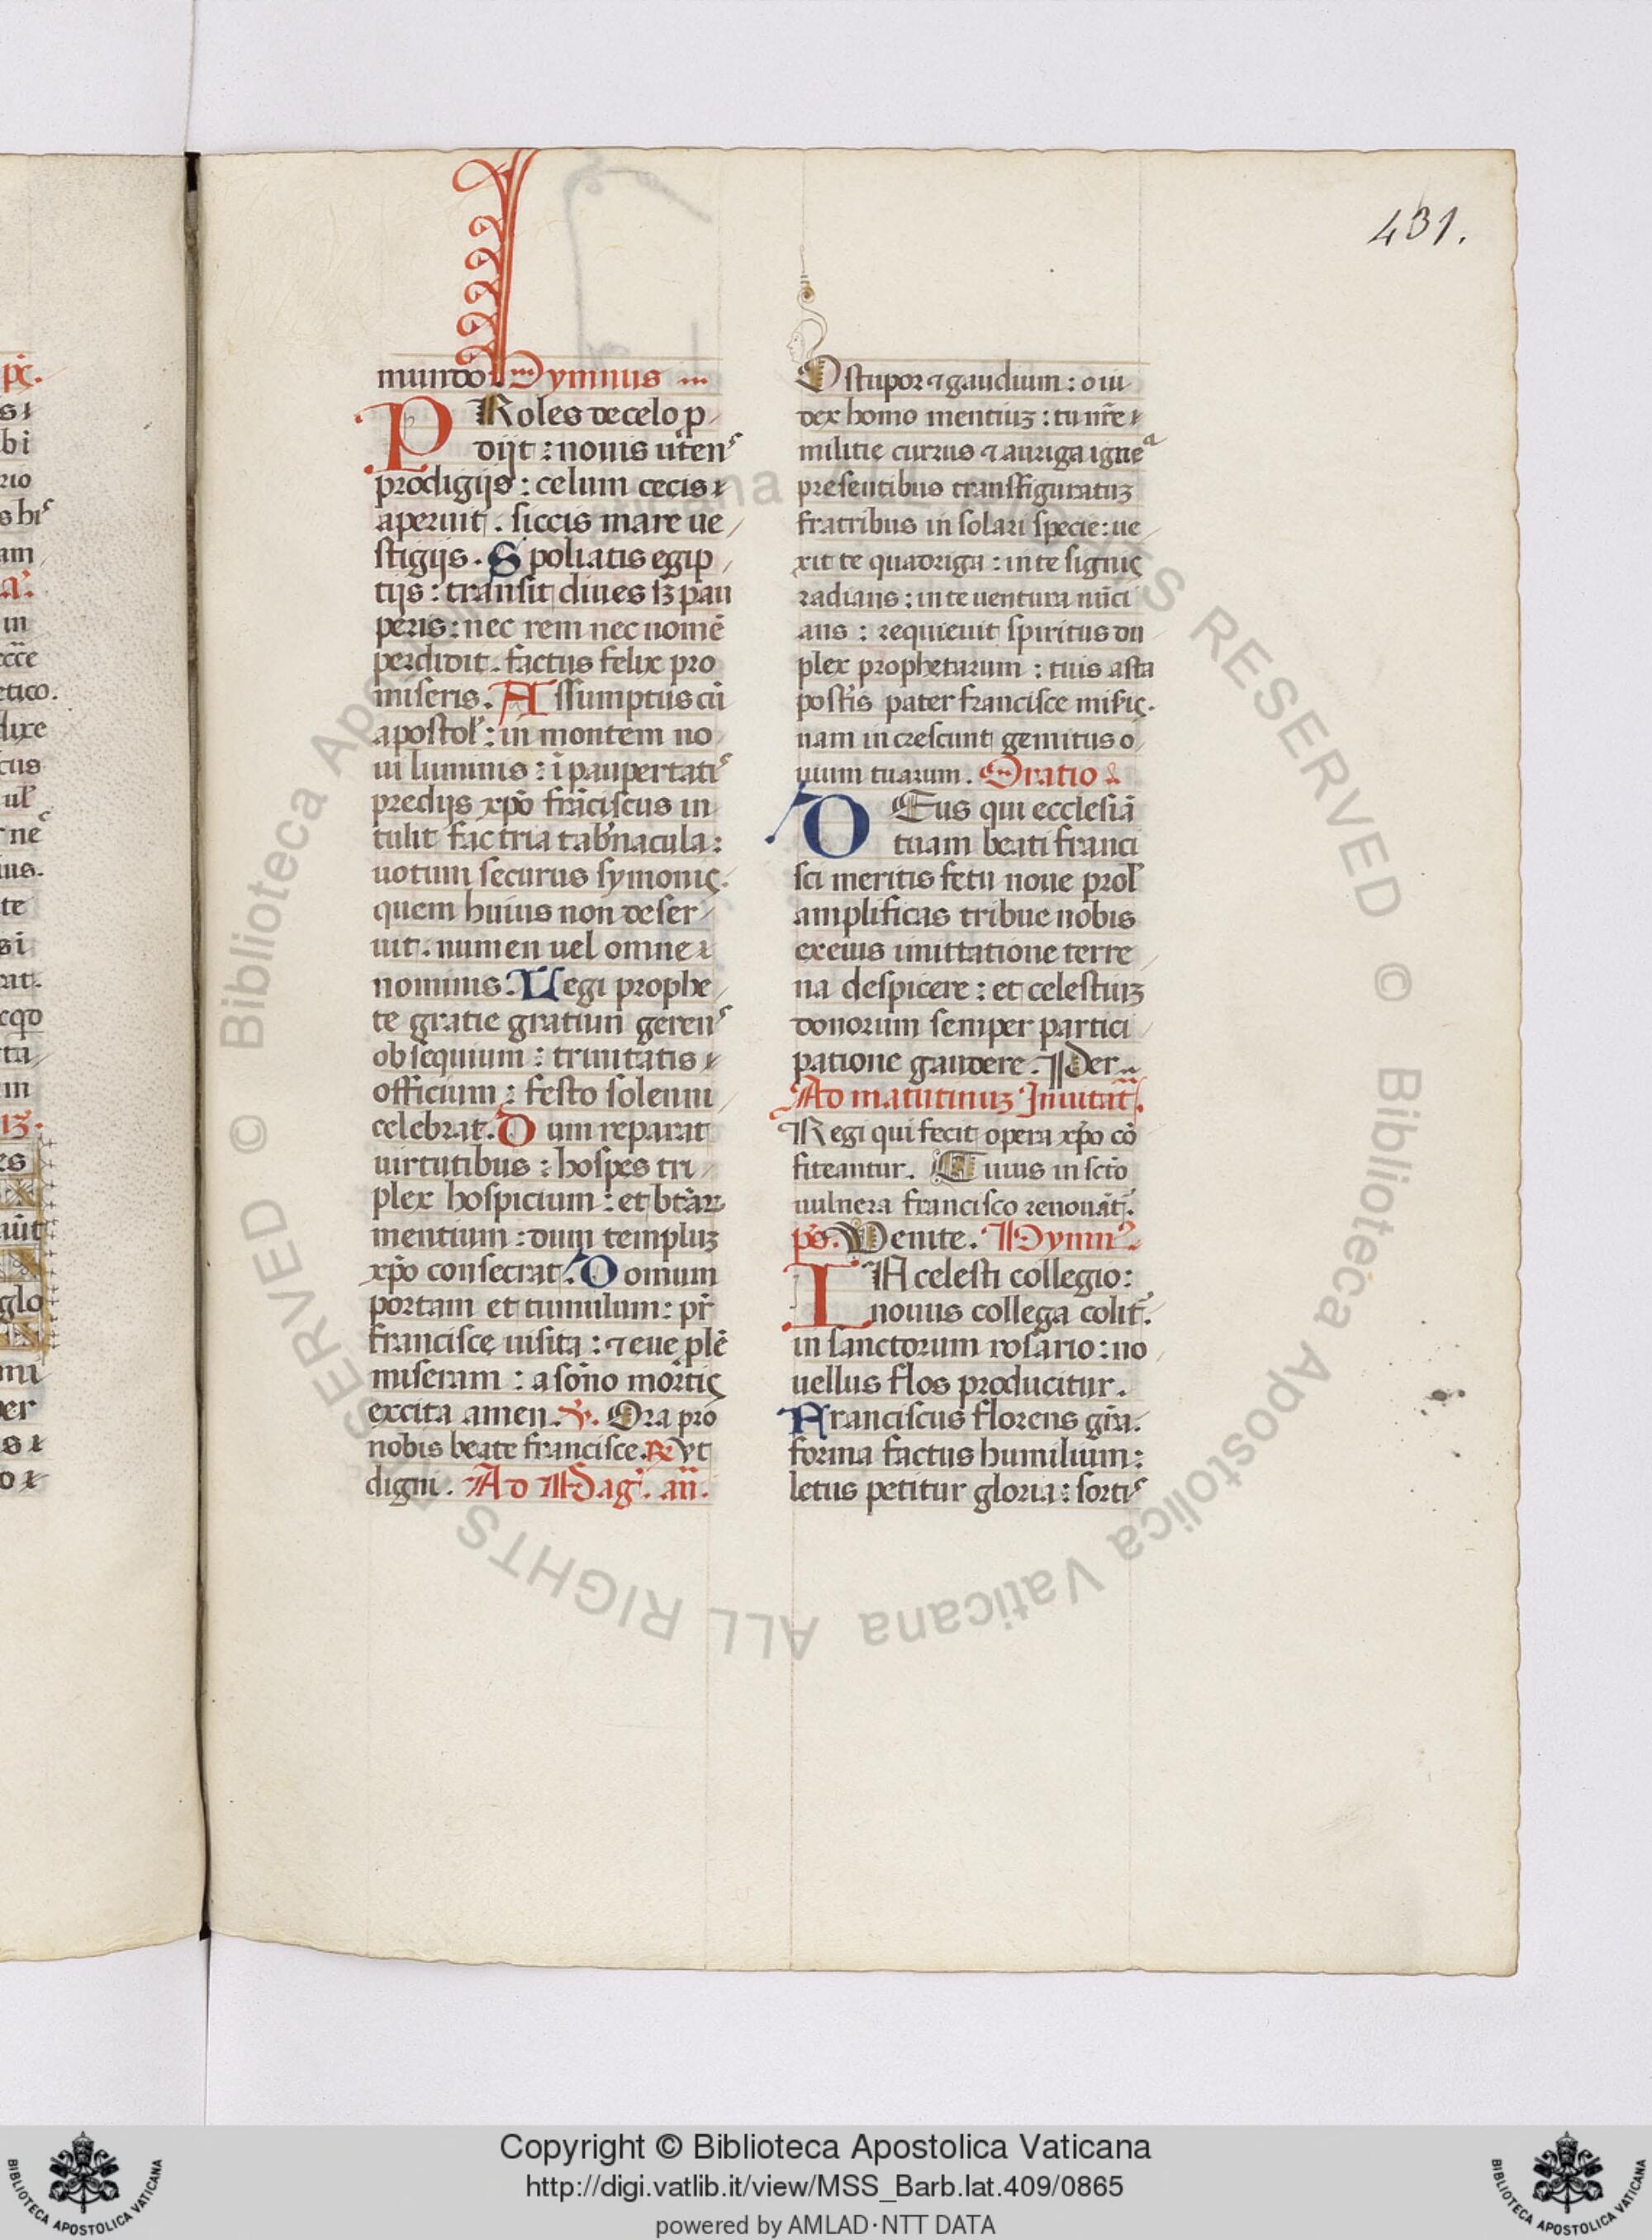 431.
mundo. Hymnus
PRoles de celo p
dijt : nouis utens
prodigijs : celum cecis
aperuit . siccis mare ue
stigijs . Spoliatis egip
tijs : transit diues sʒ pau
peris : nec rem nec nomē
perdidit . factus felix pro
miseris . Assumptus cū
apostol' : in montem no
ui luminis : ī paupertatis
predijs xp̄o frāciscus in
tulit fac tria tab'nacula :
uotum securus symonis .
quem huius non deser
uit . numen uel omne
nominis . Legi prophe
te gratie gratiun gerens
obsequium : trinitatis
officium : festo solenni
celebrat . Dum reparat
uirtutibus : hospes tri
plex hospicium : et btār
mentium : dum templuʒ
xp̄o consecrat . Domum
portam et tumulum : pr̄
francisce uisita : ⁊ eue plē
miseram : a sōno mortis
excita amen . ℣. Ora pro
nobis beate francisce . ℟ Vt
digni . Ad Mag̅. an̄.
O stupor ⁊ gaudium : o iu
dex homo mentiuʒ : tu nr̄e
militie currus ⁊ auriga ignea
presentibus transfiguratuʒ
fratribus in solari specie : ue
xit te quadriga : in te signis
radians : in te uentura nūci
ans : requieuit spiritus du
plex prophetarum : tuis asta
post'is pater francisce mis'is .
nam increscunt gemitus o
uium tuarum . Oratio
DEus qui ecclesiā
tuam beati franci
sci meritis fetu noue prol'
amplificas tribue nobis
ex eius imittatione terre
na despicere : et celestiuʒ
donorum semper partici
patione gaudere . Per
Ad matutinuʒ Inuitat̄.
Regi qui fecit opera xp̄o cō
fiteantur . Cuius in sct̄o
uulnera francisco renouāt̄ .
ps̄. Venite . Hymn'
IN celesti collegio :
nouus collega colit̄ .
in sanctorum rosario : no
uellus flos producitur .
Franciscus florens gr̄a .
forma factus humilium :
letus petitur gloria : sortis
Copyright © Biblioteca Apostolica Vaticana
http://digi.vatlib.it/view/MSS_Barb.lat.409/0865
powered by AMLAD·NTT DATA